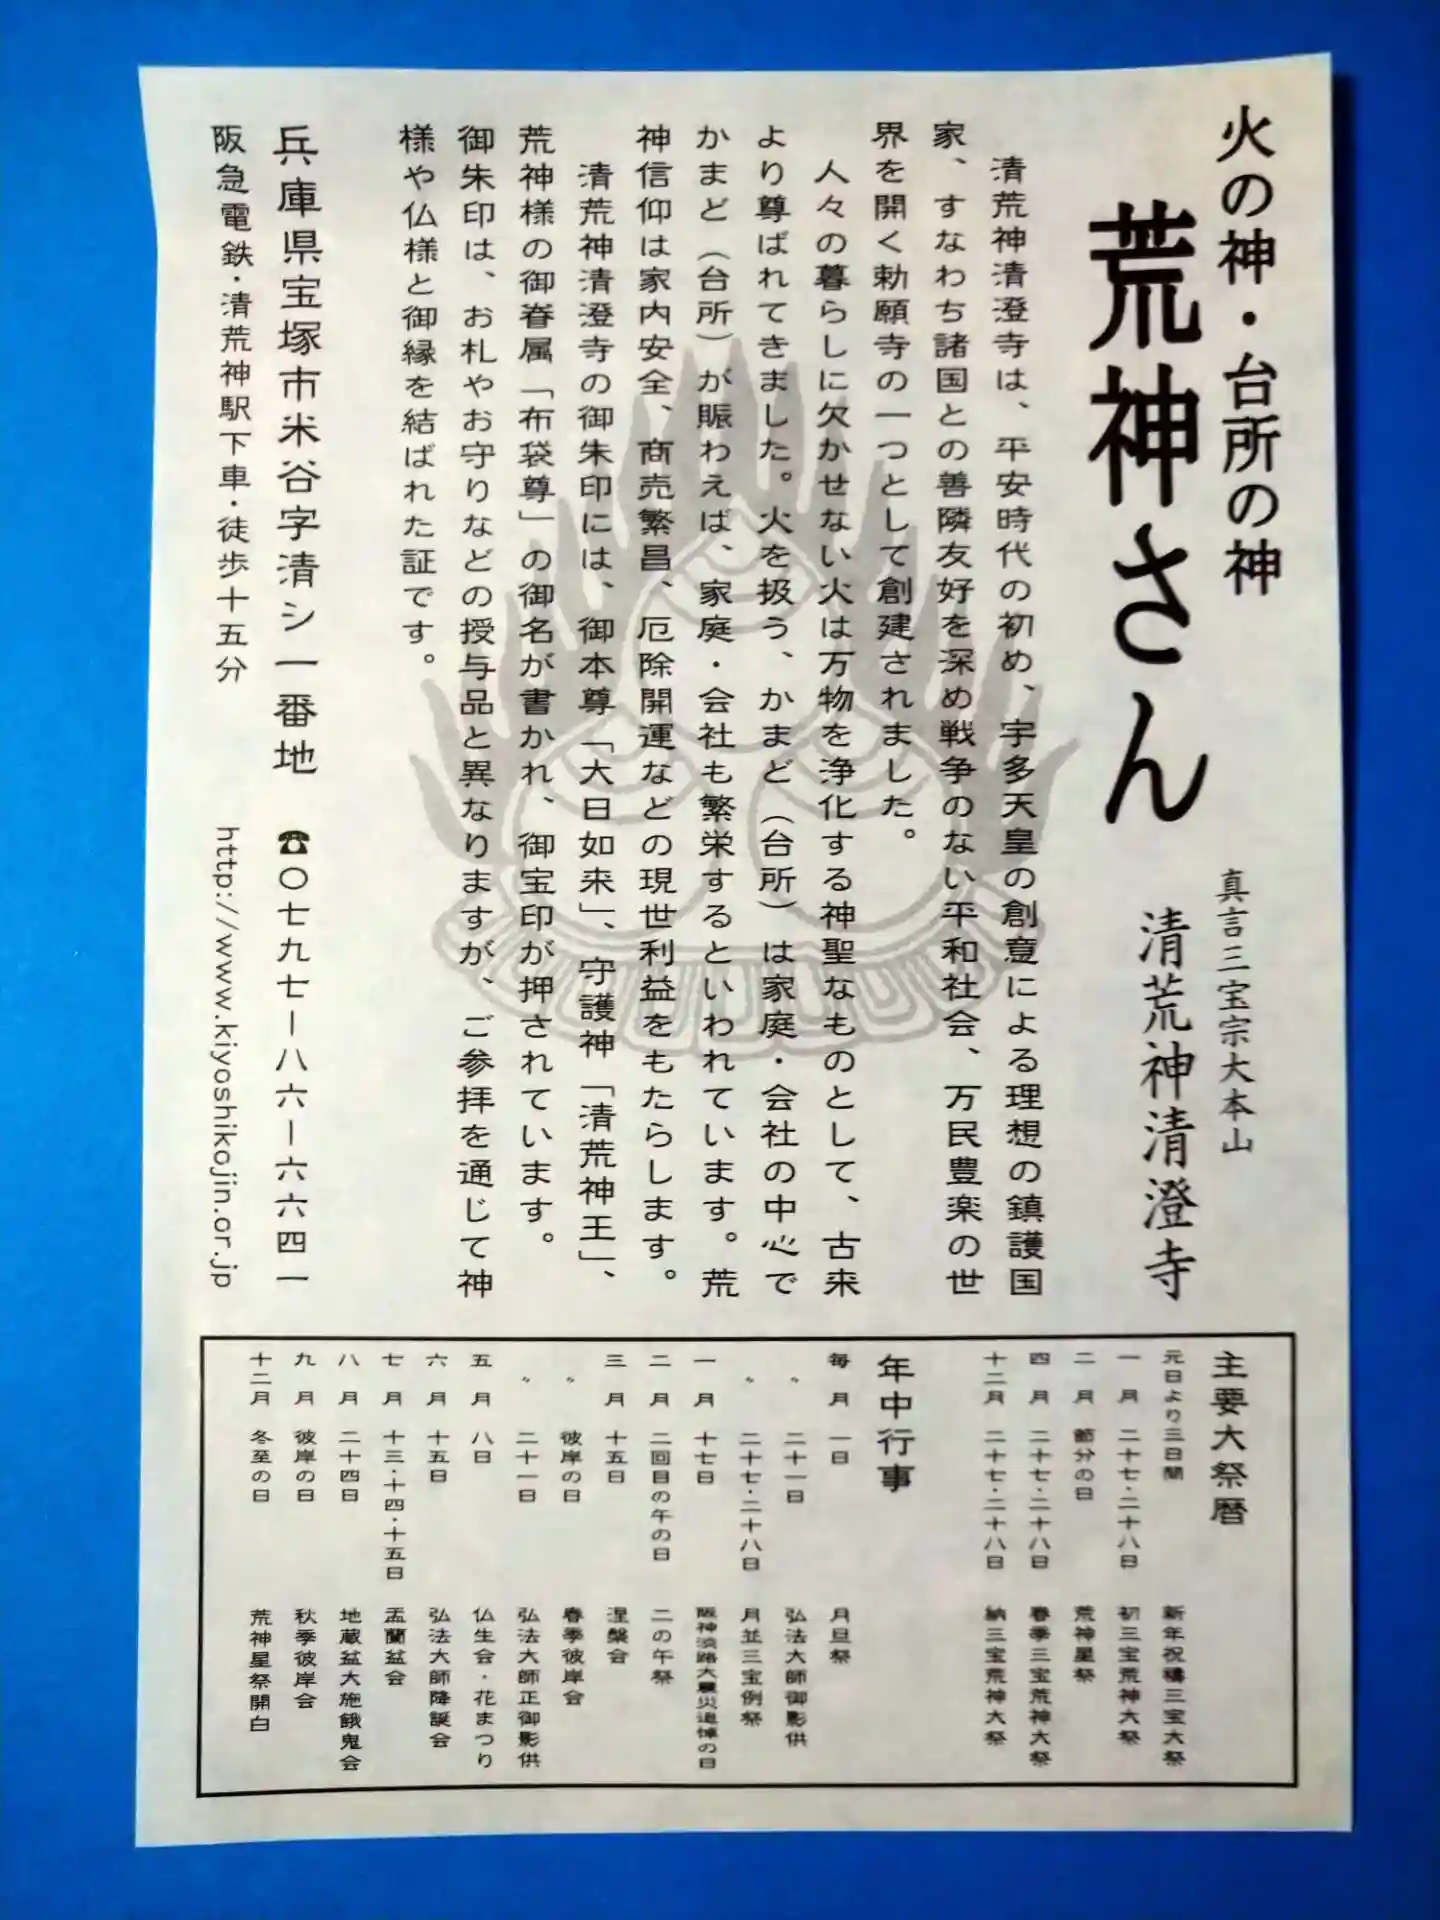 火の神・台所の神
荒神さん
真言三宝宗大本山
清荒神清澄寺
清荒神清澄寺は、平安時代の初め、宇多天皇の創意による理想の鎮護国
家、すなわち諸国との善隣友好を深め戦争のない平和社会、万民豊楽の世
界を開く勅願寺の一つとして創建されました。
人々の暮らしに欠かせない火は万物を浄化する神聖なものとして、古来
より尊ばれてきました。火を扱う、かまど（台所）は家庭・会社の中心で
かまど（台所）が賑わえば、家庭・会社も繁栄するといわれています。荒
神信仰は家内安全、商売繁昌、厄除開運などの現世利益をもたらします。
清荒神清澄寺の御朱印には、御本尊「大日如来」、守護神「清荒神王」、
荒神様の御眷属「布袋尊」の御名が書かれ、御宝印が押されています。
御朱印は、お札やお守りなどの授与品と異なりますが、ご参拝を通じて神
様や仏様と御縁を結ばれた証です。
兵庫県宝塚市米谷字清シ一番地 ☎〇七九七ー八六ー六六四一
阪急電鉄・清荒神駅下車・徒歩十五分 http://www.kiyoshikojin.or.jp
主要大祭暦
元日より三日間 新年祝禱三宝大祭
一月 二十七・二十八日 初三宝荒神大祭
二月 節分の日 荒神星祭
四月 二十七・二十八日 春季三宝荒神大祭
十二月 二十七・二十八日 納三宝荒神大祭
年中行事
毎月 一日 月旦祭
〃 二十一日 弘法大師御影供
〃 二十七・二十八日 月並三宝例祭
一月 十七日 阪神淡路大震災追悼の日
二月 二回目の午の日 二の午祭
三月 十五日 涅槃会
〃 彼岸の日 春季彼岸会
〃 二十一日 弘法大師正御影供
五月 八日 仏生会・花まつり
六月 十五日 弘法大師降誕会
七月 十三・十四・十五日 盂蘭盆会
八月 二十四日 地蔵盆大施餓鬼会
九月 彼岸の日 秋季彼岸会
十二月 冬至の日 荒神星祭開白